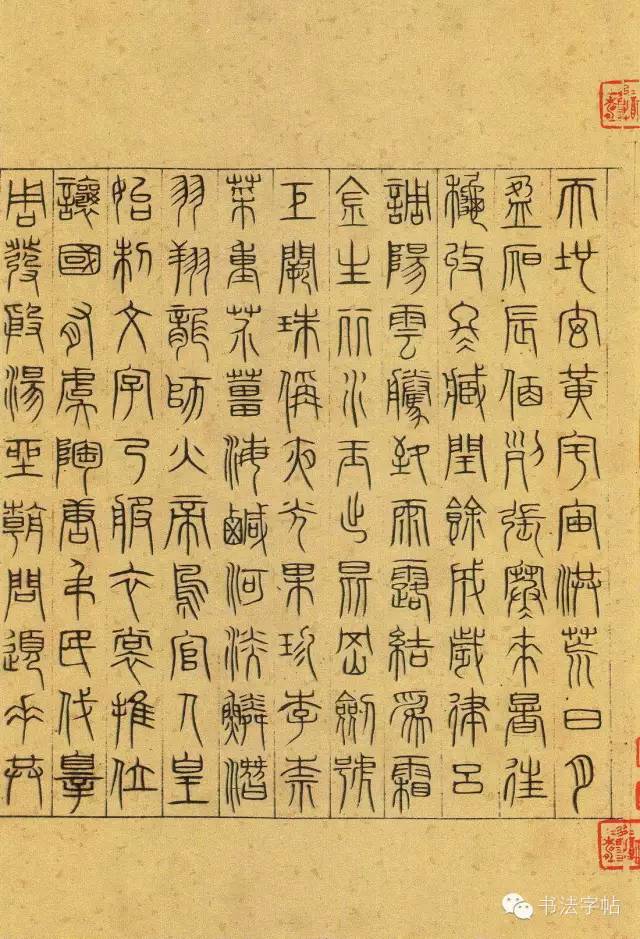 天地玄黃宇宙洪荒日月
盈昃辰宿列張寒來暑往
穐收冬藏閏餘成歲律呂
調陽雲騰致雨露結爲霜
金生丽水玉出昆岡劍號
巨闕珠稱夜光果珍李柰
菜重芥薑海鹹河淡鱗潛
羽翔龍師火帝鳥官人皇
始制文字乃服衣裳推位
讓國有虞陶唐弔民伐辠
周發殷湯坐朝問道垂拱
书法字帖